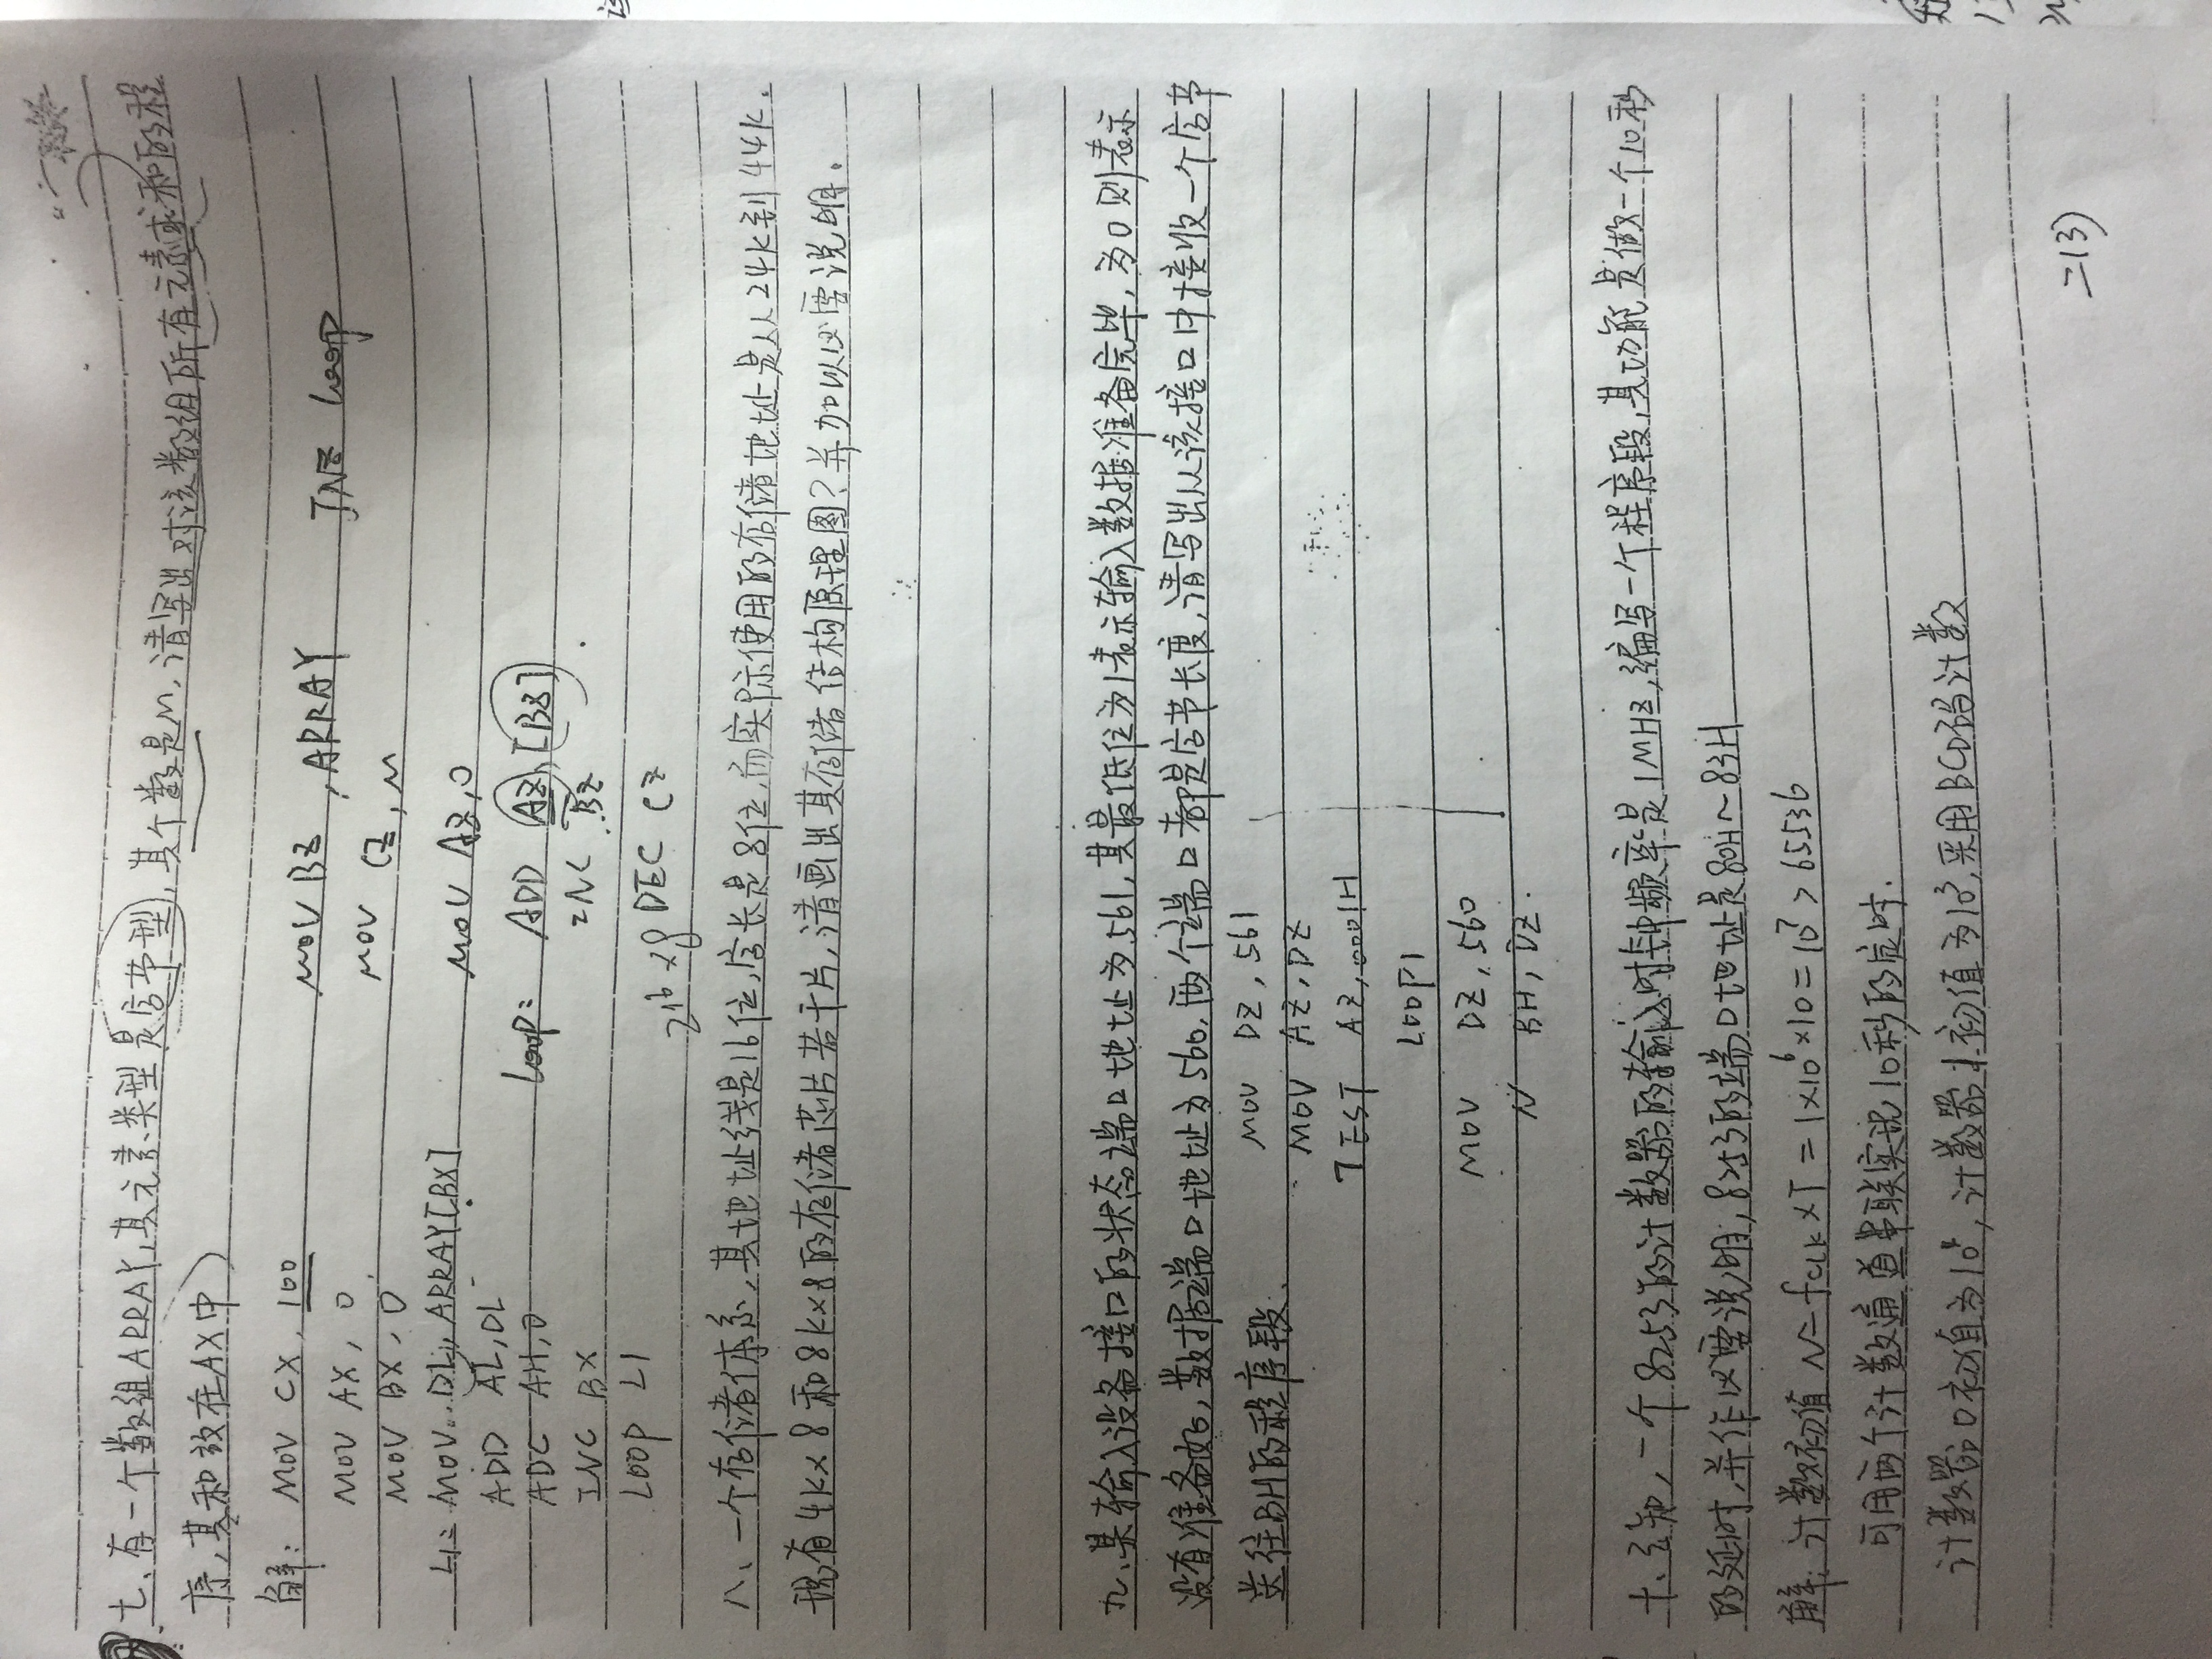 七、有一个数组ARRAY,其元素类型是字节型,其个数是M,请写出对该数组所有元素求和的程
序,其和放在AX中
解: MOV CX, 100
MOV AX, 0
MOV BX, 0
L1: MOV DL, ARRAY[BX]
ADD AL, DL
ADC AH, 0
INC BX
LOOP L1
MOV BZ, ARRAY
MOV CZ, M
MOV AZ, 0
Loop: ADD AZ, [BZ]
INC BZ
DEC CZ
JNZ Loop
2¹⁶×8
八、一个存储体系,其地址线是16位,字长是8位,而实际使用的存储地址是从24K到44K.
现有4K×8和8K×8的存储芯片若干片,请画出其存储结构原理图?并加以必要说明.
九、某输入设备接口的状态端口地址为561,其最低位为1表示输入数据准备完毕,为0则表示
没有准备好,数据端口地址为560,两个端口都是字节长度,请写出从该接口中接收一个字节
送往BH的程序段.
MOV DZ, 561
MOV AZ, DZ
TEST AZ, 0001H
LOOP1
MOV DZ, 560
N BH, DZ.
十、已知,一个8253的计数器的输入时钟频率是1MHZ,编写一个程序段,其功能是做一个10秒
的延时,并作必要说明,8253的端口地址是80H~83H
解: 计数初值 N=fCLK×T=1×10⁶×10=10⁷>65536
可用两个计数通道串联实现10秒的定时.
计数器0初值为10⁴,计数器1初值为10³,采用BCD码计数
二(3)